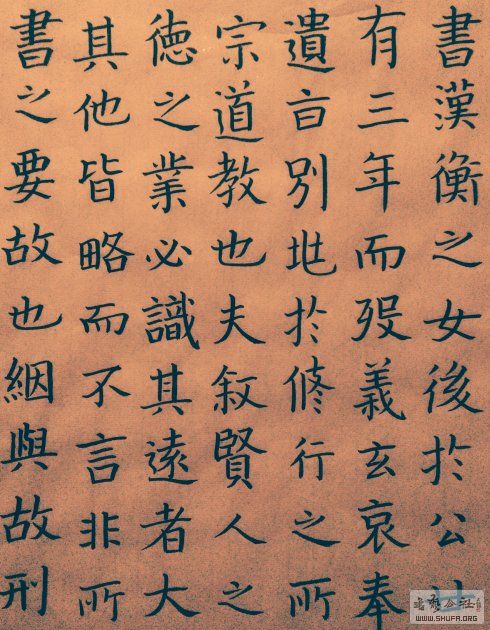 書漢衡之女後於公
有三年而歿義玄哀奉
遺旨别兆於修行之所
宗道教也夫叙賢人之
徳之業必識其遠者大
其他皆略而不言非所
書之要故也絪與故刑
書法公社
WWW.SHUFA.ORG